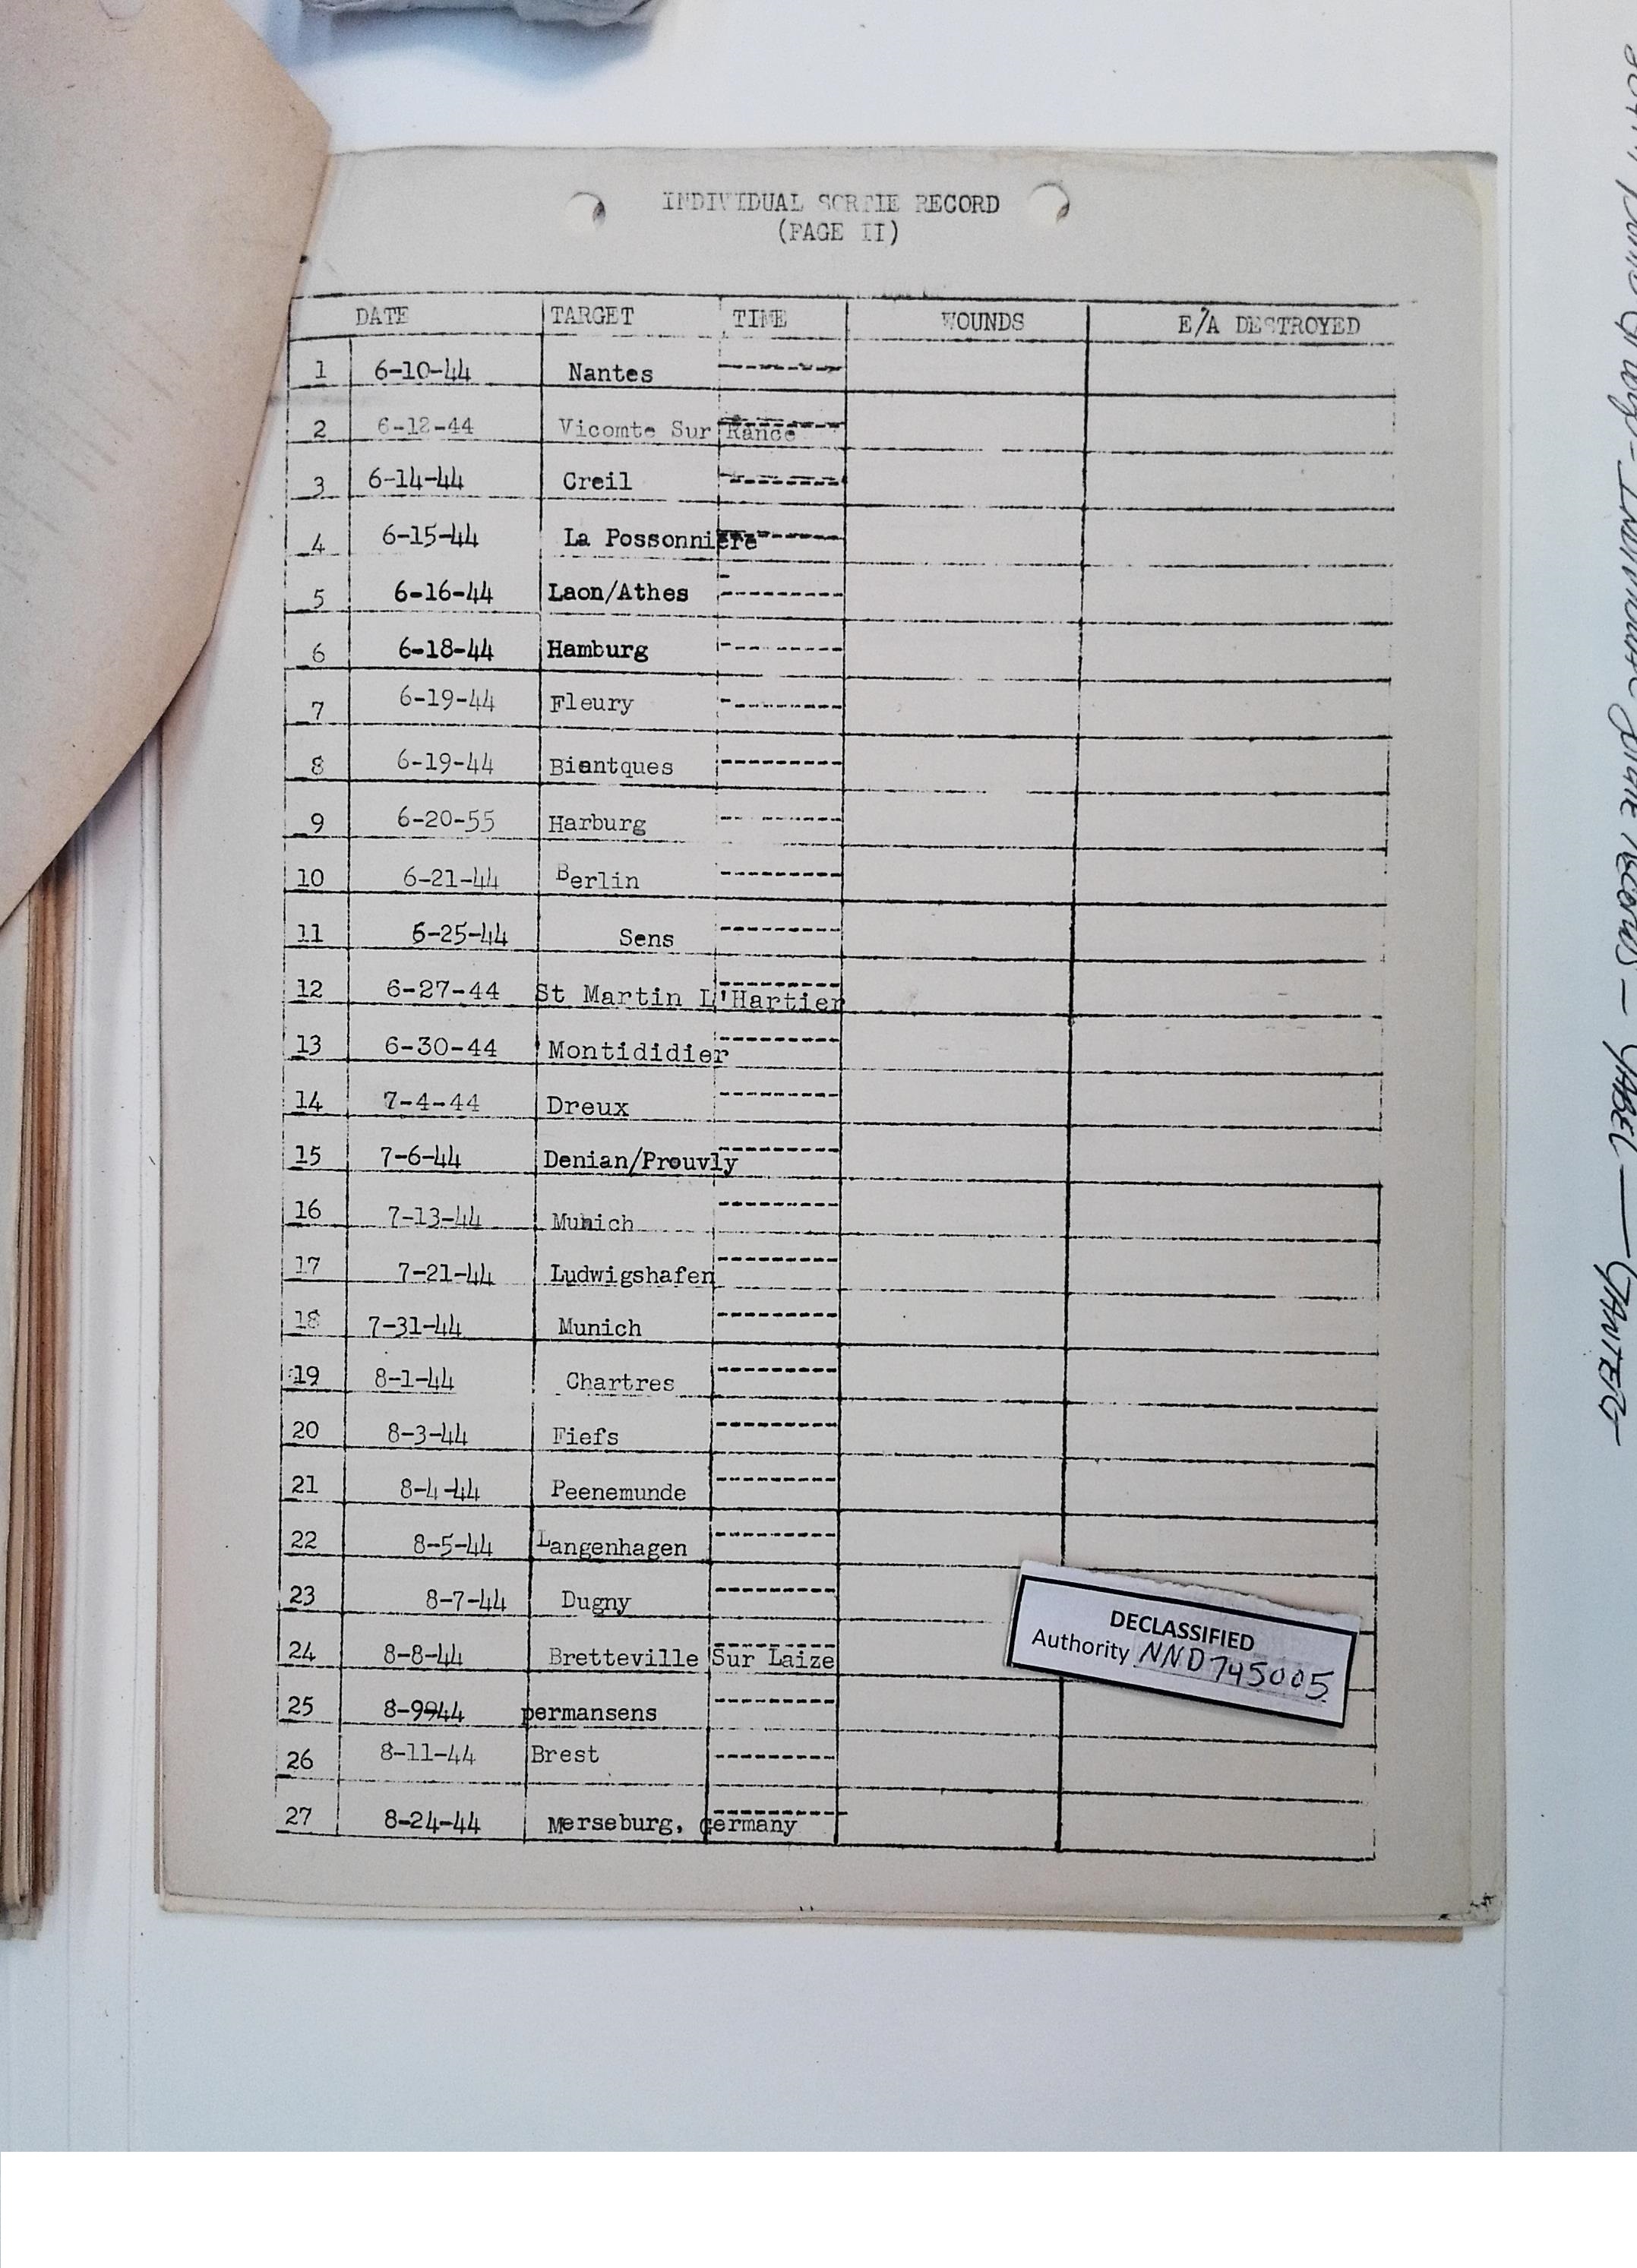 INDIVIDUAL SORTIE RECORD
(PAGE II)
DATE TARGET TIME WOUNDS E/A DESTROYED
1 6-10-44 Nantes ---------
2 6-12-44 Vicomte Sur Rance
3 6-14-44 Creil ---------
4 6-15-44 La Possonniere
5 6-16-44 Laon/Athes ---------
6 6-18-44 Hamburg ---------
7 6-19-44 Fleury ---------
8 6-19-44 Bientques ---------
9 6-20-55 Harburg ---------
10 6-21-44 Berlin ---------
11 6-25-44 Sens ---------
12 6-27-44 St Martin L'Hartier ---------
13 6-30-44 Montididier ---------
14 7-4-44 Dreux ---------
15 7-6-44 Denian/Prouvly ---------
16 7-13-44 Munich ---------
17 7-21-44 Ludwigshafen ---------
18 7-31-44 Munich ---------
19 8-1-44 Chartres ---------
20 8-3-44 Fiefs ---------
21 8-4-44 Peenemunde ---------
22 8-5-44 Langenhagen ---------
23 8-7-44 Dugny ---------
24 8-8-44 Bretteville Sur Laize ---------
25 8-9944 permansens ---------
26 8-11-44 Brest ---------
27 8-24-44 Merseburg, germany ---------
DECLASSIFIED
Authority NND745005
Group - Individual Sortie Records - YABEL - YANTEG